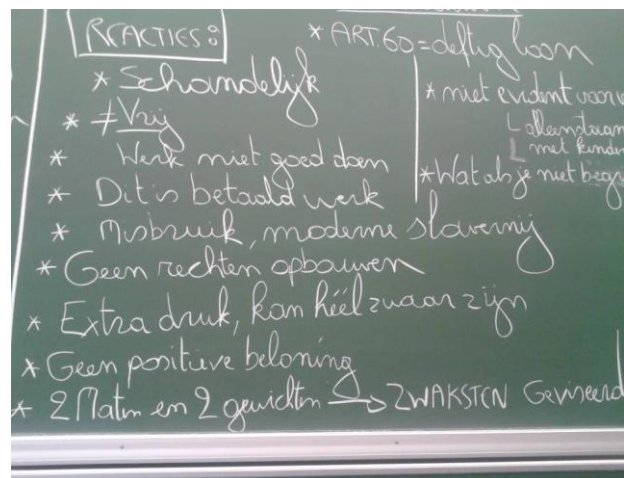 REACTIES:
* Schandelijk
* ≠ Vrij
* Werk niet goed doen
* Dit is betaald werk
* Misbruik, moderne slavernij
* Geen rechten opbouwen
* Extra druk, kan héél zwaar zijn
* Geen positieve beloning
* 2 Maten en 2 gewichten → ZWAKSTEN Geviseerd
* ART. 60 = deftig loon
* niet evident voor
alleenstaan
met kinder
* Wat als je niet begr